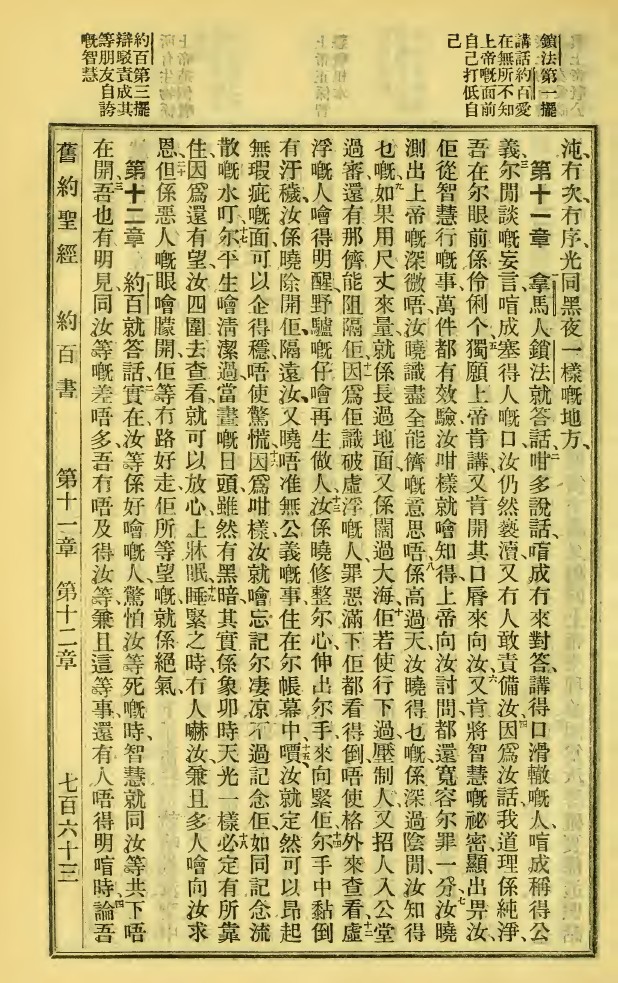 鎖法第一擺
講話約百愛
在無所不知
上帝嘅面前
自己打低自
己
約百第三擺
辯駁責成其
等朋友自誇
嘅智慧
沌冇次冇序光同黑夜一樣嘅地方
第十一章 拿馬人鎖法就答話二咁多說話唷成有來對答講得口滑轍嘅人唷成稱得公
義三尔閒談嘅妄言唷成塞得人嘅口汝仍然褻瀆又冇人敢責備汝四因爲汝話我道理係純淨
吾在尔眼前係伶俐个五獨願上帝肯講又肯開其口唇來向汝六又肯將智慧嘅祕密顯出畀汝
佢從智慧行嘅事萬件都有效驗汝咁樣就噲知得上帝向汝討問都還寬容尔罪一分七汝曉
測出上帝嘅深微唔汝曉識盡全能儕嘅意思唔八係高過天汝曉得乜嘅係深過陰間汝知得
乜嘅九如果用尺丈來量就係長過地面又係闊過大海十佢若使行下過壓制人又招人入公堂
過審還有那儕能阻隔佢十一因爲佢識破虛浮嘅人罪惡滿下佢都看得倒唔使格外來查看十二虛
浮嘅人噲得明醒野驢嘅仔噲再生做人十三汝係曉修整尔心伸出尔手來向緊佢十四尔手中黏倒
有汙穢汝係曉除開佢隔遠汝又曉唔准無公義嘅事住在尔帳幕中嘖十五汝就定然可以昂起
無瑕疵嘅面可以企得穩唔使驚慌十六因爲咁樣汝就噲忘記尔凄凉不過記念佢如同記念流
散嘅水叮十七尔平生噲清潔過當晝嘅日頭雖然有黑暗其實係象卯時天光一樣十八必定有所靠
住因爲還有望汝四圍去查看就可以放心上牀眠十九睡緊之時冇人嚇汝兼且多人噲向汝求
恩二十但係惡人嘅眼噲朦開佢等冇路好走佢所等望嘅就係絕氣
第十二章 約百就答話二實在汝等係好噲嘅人驚怕汝等死嘅時智慧就同汝等共下唔
在開三吾也有明見同汝等嘅差唔多吾冇唔及得汝等兼且這等事還有人唔得明唷時四論吾
舊約聖經 約百書 第十一章 第十二章 七百六十三